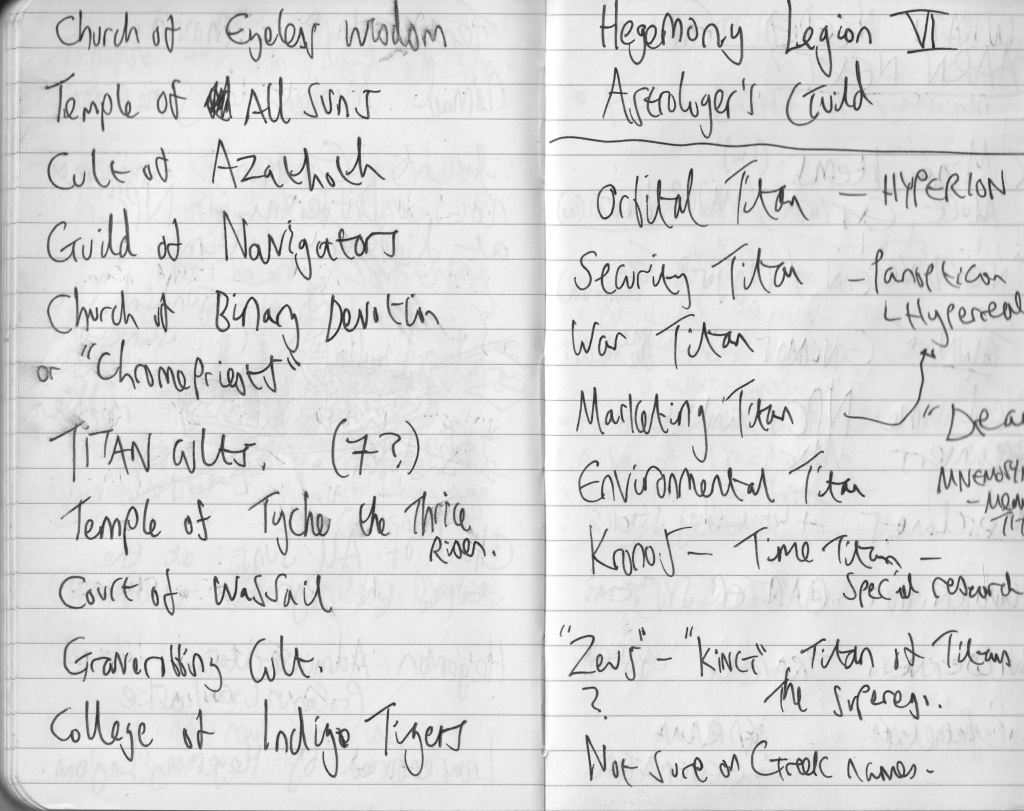 Church of Eyeless Wisdom
Temple of All Suns
Cult of Azathoth
Guild of Navigators
Church of Binary Devotin
or "Chromepriests"
TITAN cults. (7?)
Temple of Tyche the Thrice
Risen.
Court of Wassail
Graverobbing Cult.
College of Indigo Tigers
Hegemony Legion VI
Astrologer's Guild
Orbital Titan — HYPERION
Security Titan — Panopticon
Hyperreal
War Titan
Marketing Titan
Environmental Titan
Kronos — Time Titan —
Special research
"Zeus" — "KING" Titan of Titans
? the superego.
Not sure on Greek names.